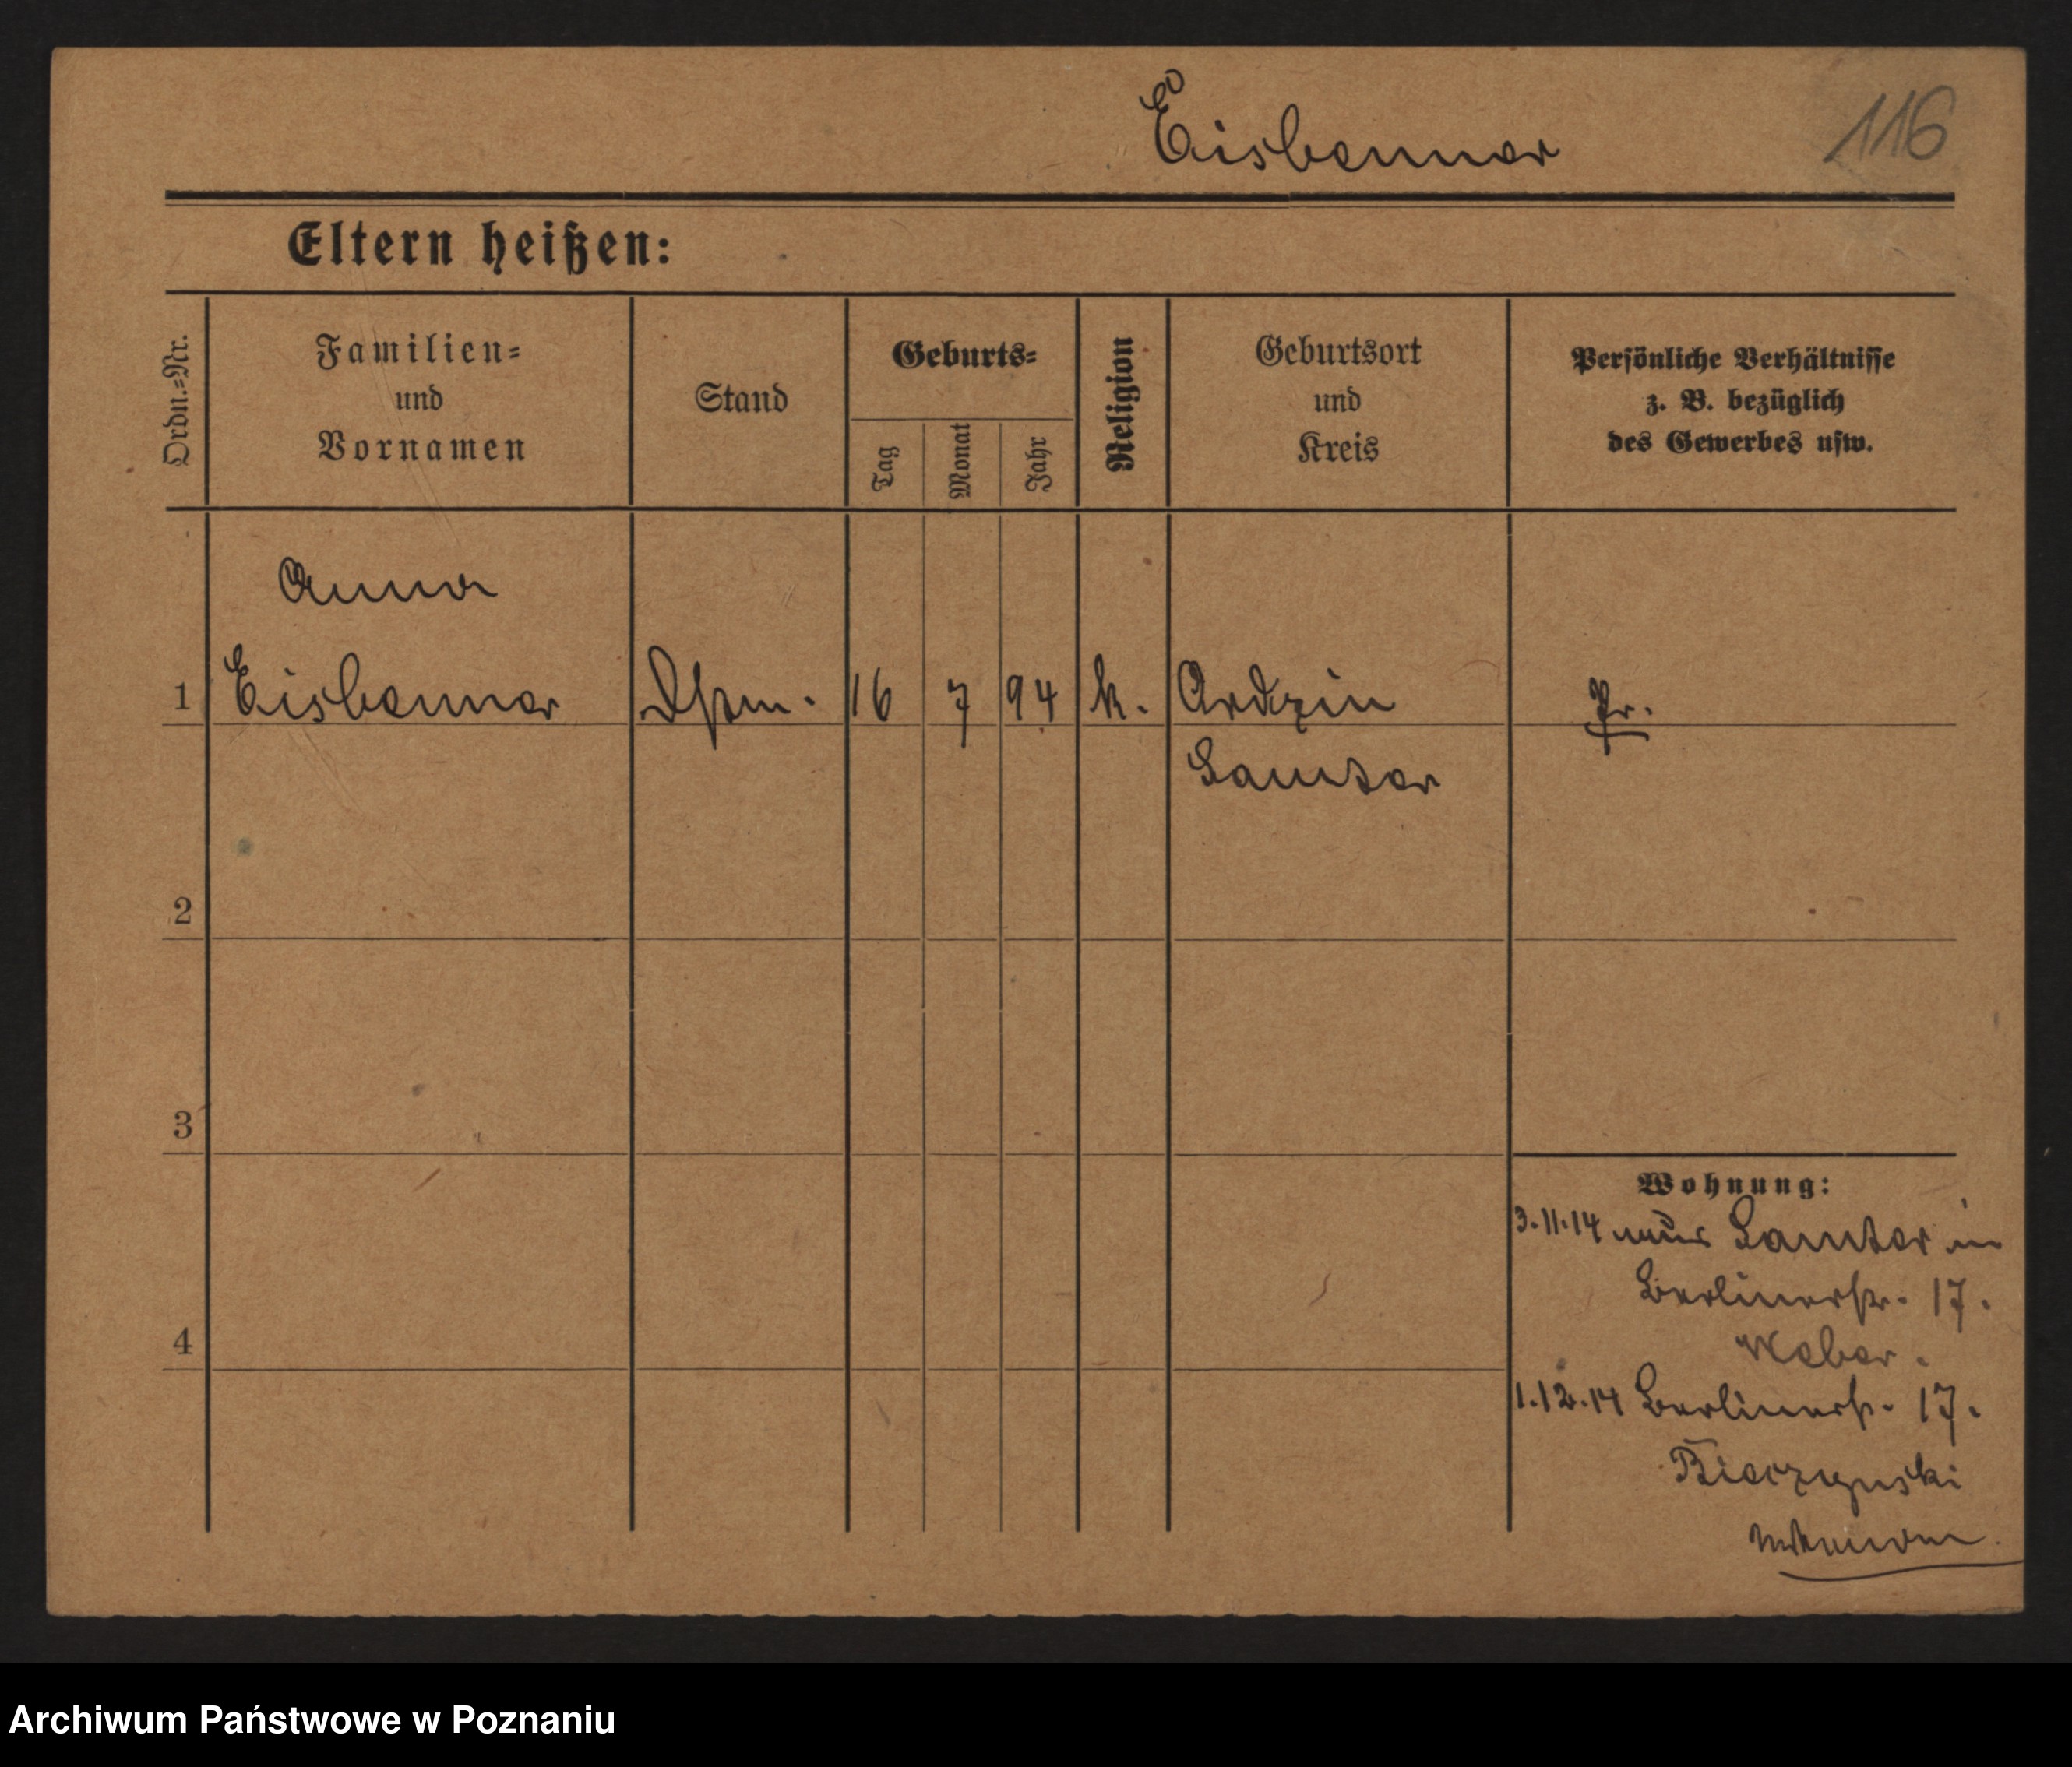 Eisbenner
116
Eltern heißen:
Ordn.=Nr.
Familien=
und
Vornamen
Stand
Geburts=
Tag
Monat
Jahr
Religion
Geburtsort
und
Kreis
Persönliche Verhältnisse
z. B. bezüglich
des Gewerbes usw.
Anna
1 Eisbenner Dstm. 16 7 94 k. Ordzin Pr.
Samter
2
3
4
Wohnung:
3.11.14 aus Samter in
Berlinerstr. 17.
Weber.
1.12.14 Berlinerstr. 17.
Archiwum Państwowe w Poznaniu